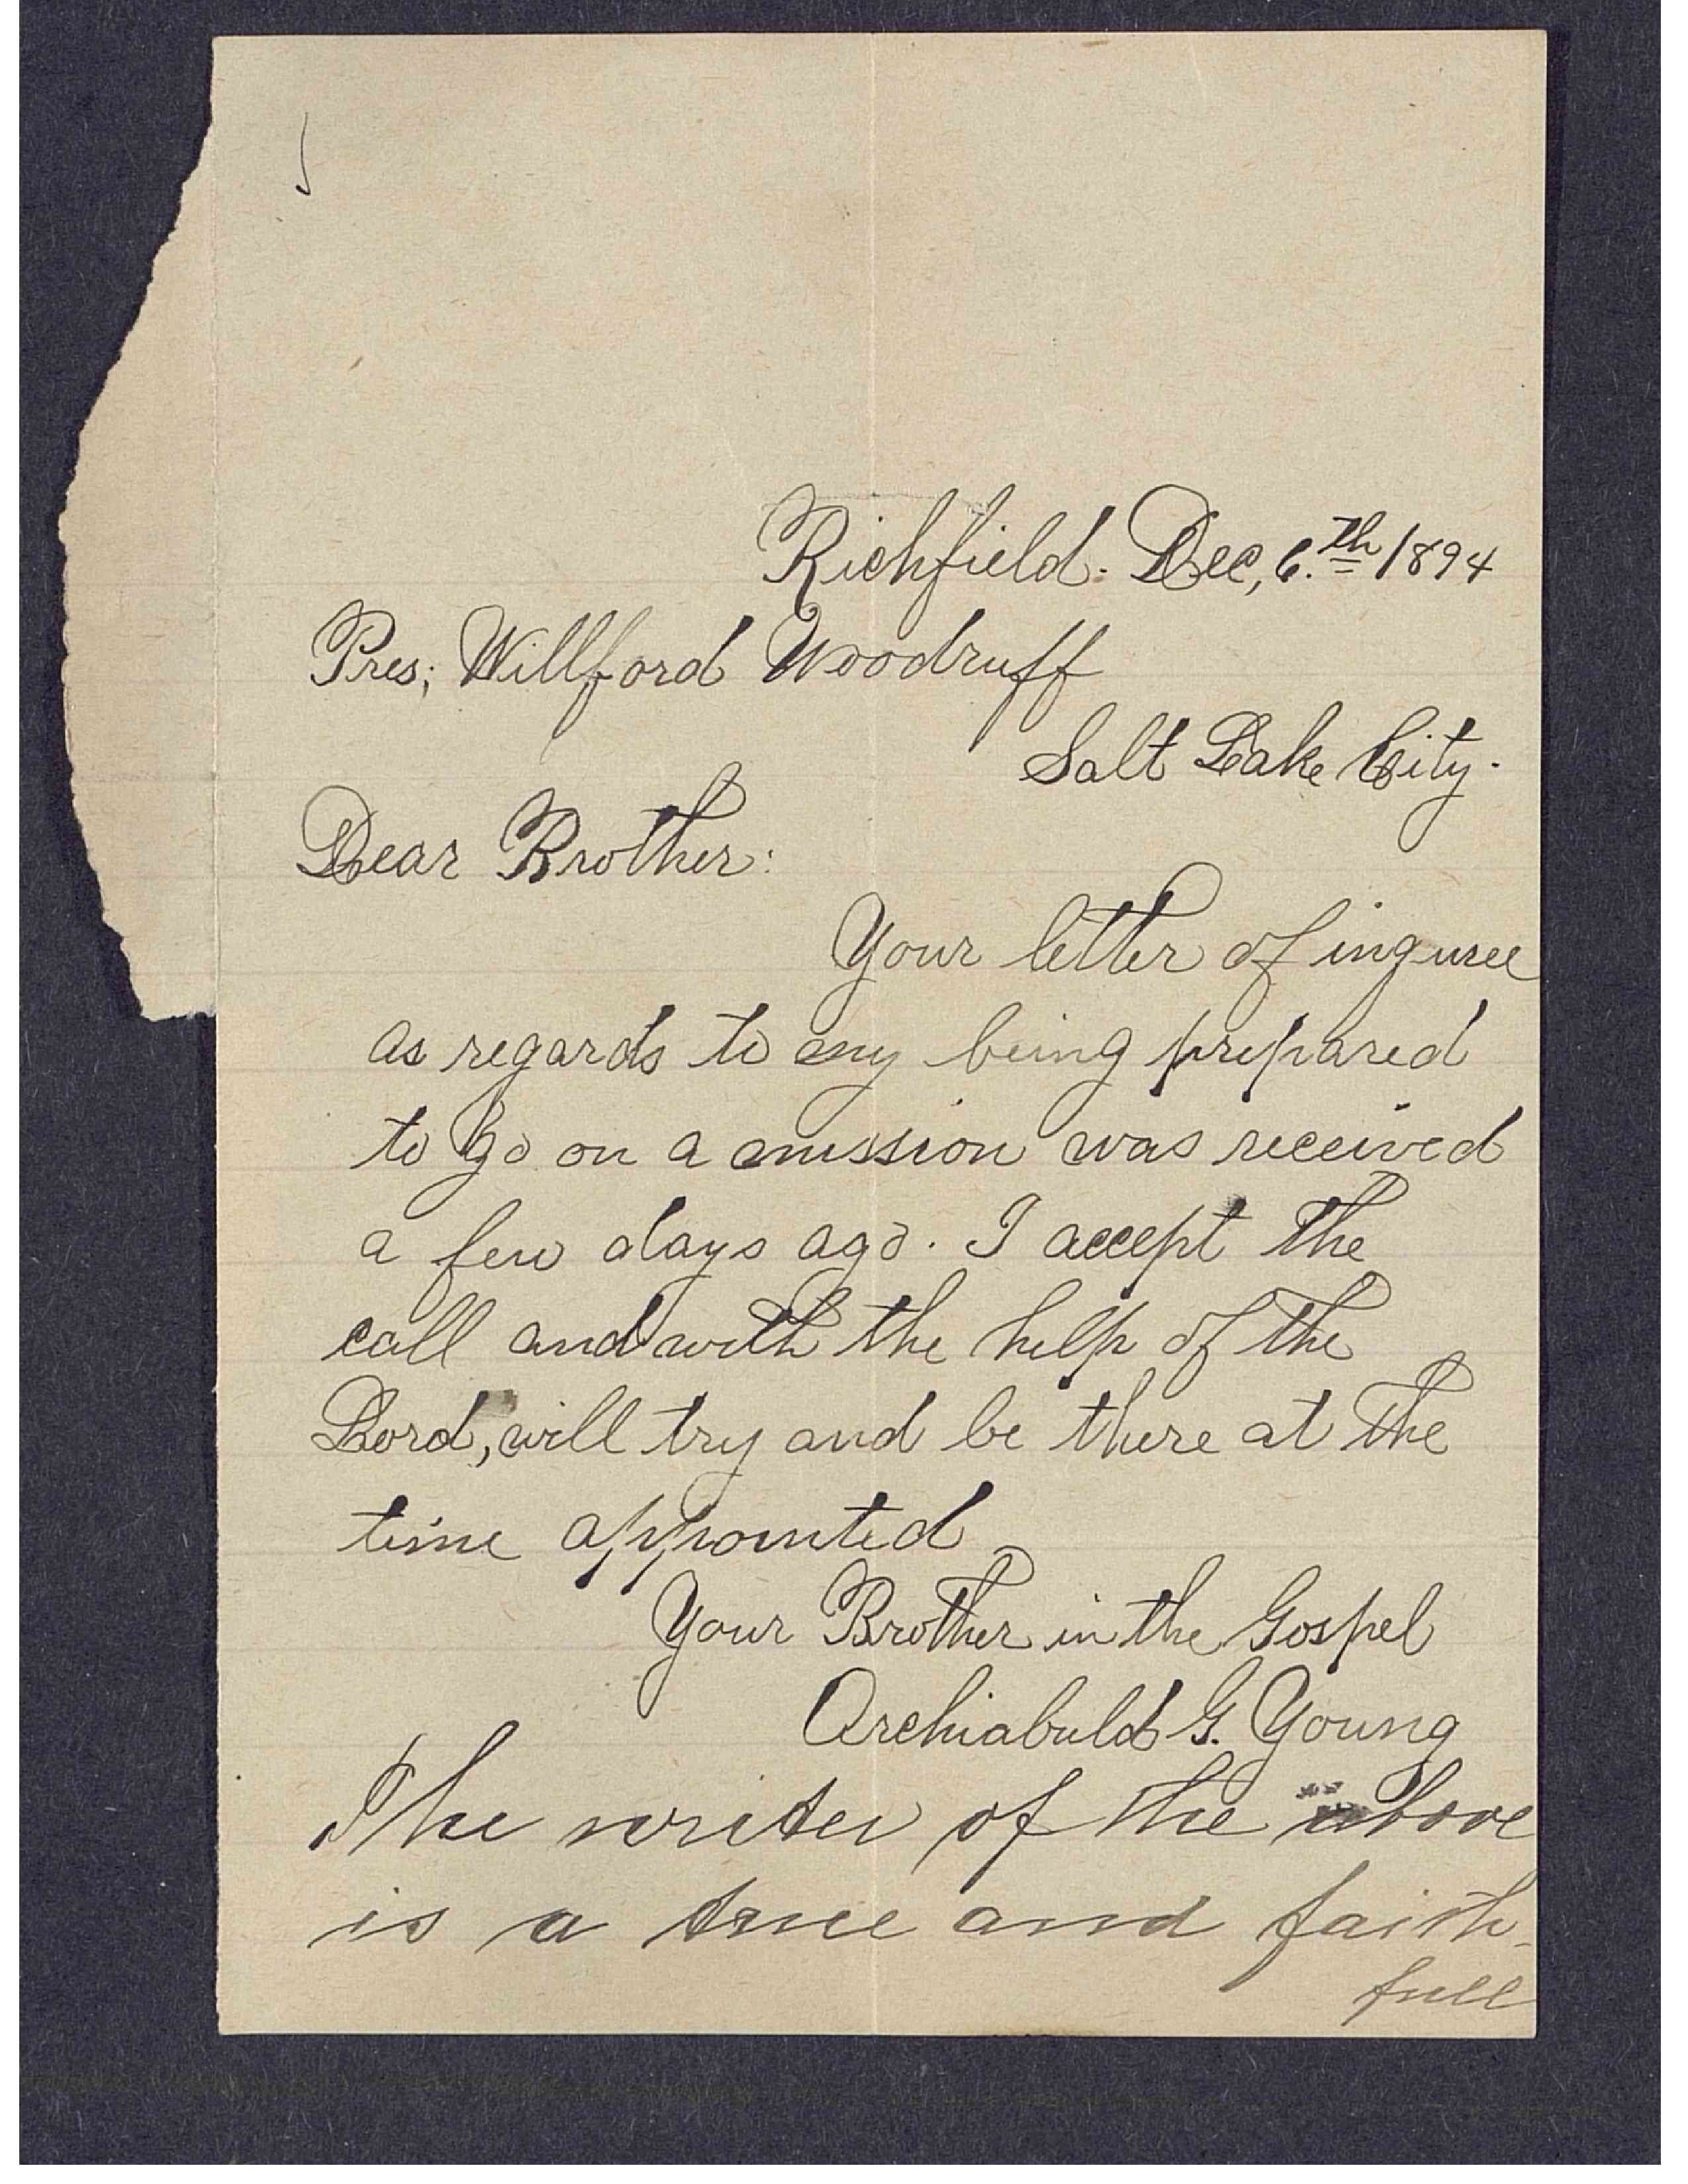 Richfield. Dec, 6.th 1894
Pres; Willford Woodruff
Salt Lake City.
Dear Brother:
Your letter of inguree
as regards to my being prepared
to go on a mission was received
a few days ago. I accept the
call and with the help of the
Lord, will try and be there at the
time appointed
Your Brother in the Gospel
Archiabuld G. Young
The writer of the above
is a true and faith-
full